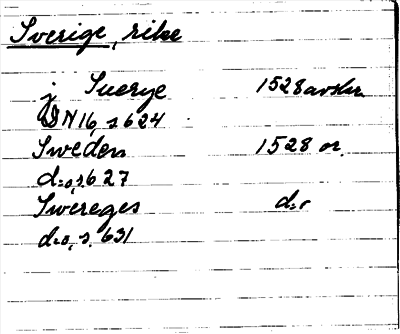 Sverige, rike
j Suerye 1528 avskr.
DN 16, s 624
Sweden 1528 or.
d:o, s. 627
Swereges d:o
d:o, s. 631